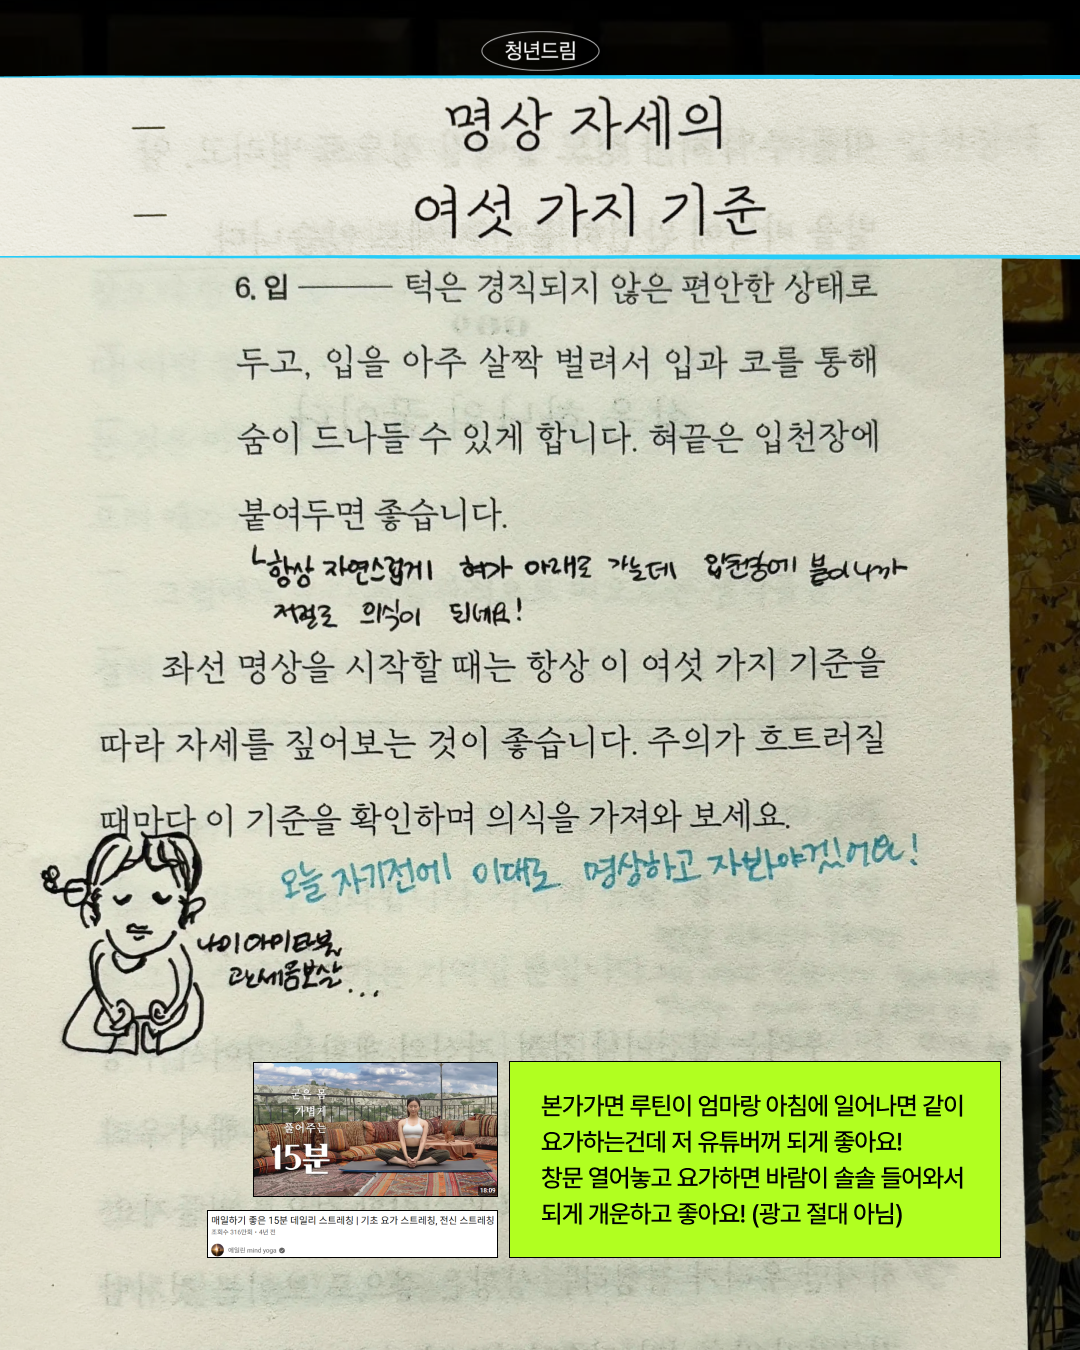 청년드림
명상 자세의
여섯 가지 기준
6. 입 ──── 턱은 경직되지 않은 편안한 상태로
두고, 입을 아주 살짝 벌려서 입과 코를 통해
숨이 드나들 수 있게 합니다. 혀끝은 입천장에
붙여두면 좋습니다.
항상 자연스럽게 혀가 아래로 가는데 입천장에 붙이니까
저절로 의식이 되네요!
좌선 명상을 시작할 때는 항상 이 여섯 가지 기준을
따라 자세를 짚어보는 것이 좋습니다. 주의가 흐트러질
때마다 이 기준을 확인하며 의식을 가져와 보세요.
오늘 자기전에 이대로 명상하고 자봐야겠어요!
나미아미타불
관세음보살...
굳은 몸
가볍게
풀어주는
15분
18:09
매일하기 좋은 15분 데일리 스트레칭 | 기초 요가 스트레칭, 전신 스트레칭
조회수 316만회 • 4년 전
에일린 mind yoga
본가가면 루틴이 엄마랑 아침에 일어나면 같이
요가하는건데 저 유튜버꺼 되게 좋아요!
창문 열어놓고 요가하면 바람이 솔솔 들어와서
되게 개운하고 좋아요! (광고 절대 아님)